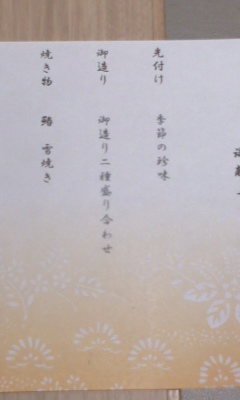 先付け 季節の珍味
御造り 御造り二種盛り合わせ
焼き物 鰆 雲焼き